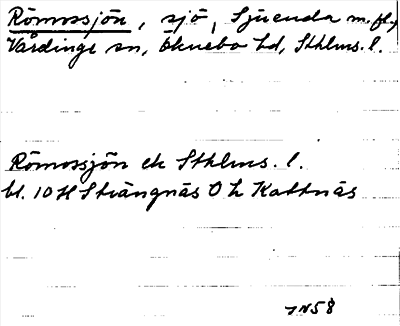 Römossjön, sjö, Sjuenda m.fl.,
Vårdinge sn, Öknebo hd, Sthlms. l.
Römossjön ek Sthlms. l.
bl. 10 H Strängnäs O h Kattnäs
JN58